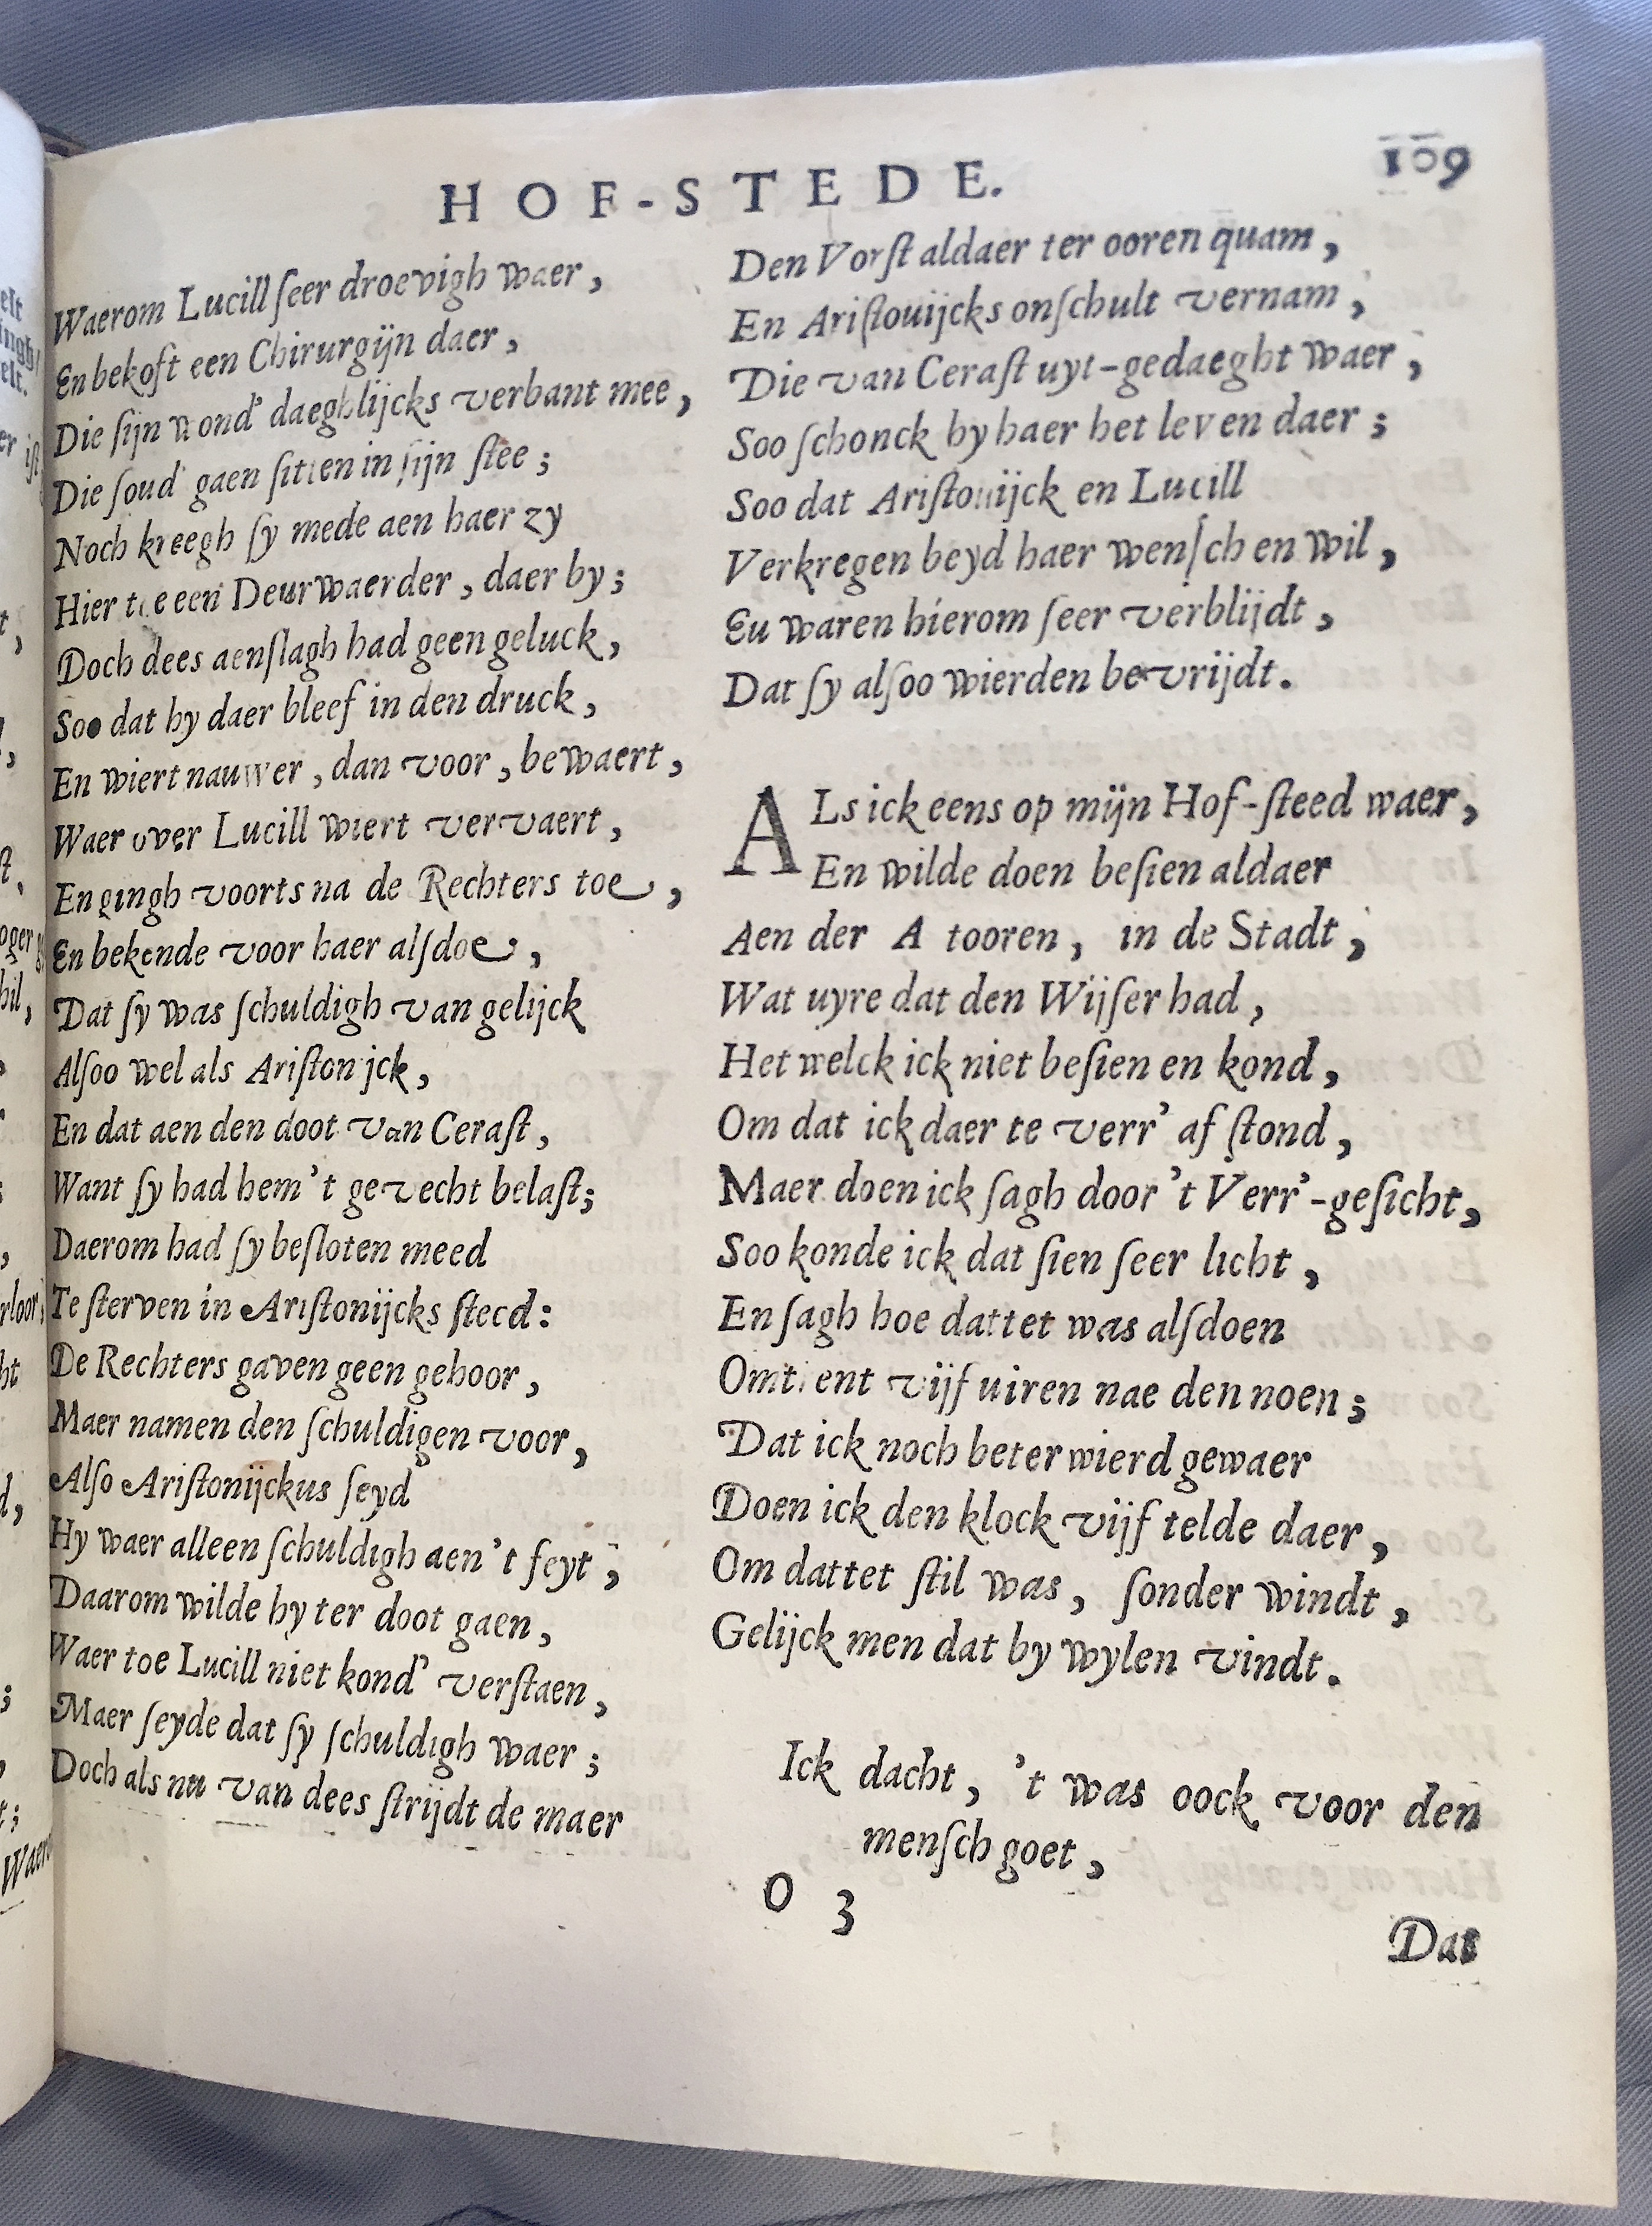 HOF-STEDE.
109
Waerom Lucill ſeer droevigh waer,
En bekoft een Chirurgijn daer,
Die ſijn wond' daeghlijcks verbant mee,
Die ſoud' gaen ſitten in ſijn ſtee;
Noch kreegh ſy mede aen haer zy
Hier toe een Deurwaerder, daer by;
Doch dees aenſlagh had geen geluck,
Soo dat hy daer bleef in den druck,
En wiert nauwer, dan voor, bewaert,
Waer over Lucill wiert vervaert,
En gingh voorts na de Rechters toe,
En bekende voor haer alſdoe,
Dat ſy was ſchuldigh van gelijck
Alſoo wel als Ariſtonijck,
En dat aen den doot van Ceraſt,
Want ſy had hem 't gevecht belaſt;
Daerom had ſy beſloten meed
Te ſterven in Ariſtonijcks ſteed:
De Rechters gaven geen gehoor,
Maer namen den ſchuldigen voor,
Alſo Ariſtonijckus ſeyd
Hy waer alleen ſchuldigh aen 't feyt;
Daarom wilde hy ter doot gaen,
Waer toe Lucill niet kond' verſtaen,
Maer ſeyde dat ſy ſchuldigh waer;
Doch als nu van dees ſtrijdt de maer
Den Vorſt aldaer ter ooren quam,
En Ariſtouijcks onſchult vernam,
Die van Ceraſt uyt-gedaeght waer,
Soo ſchonck hy haer het leven daer;
Soo dat Ariſtonijck en Lucill
Verkregen beyd haer wenſch en wil,
Eu waren hierom ſeer verblijdt,
Dat ſy alſoo wierden bevrijdt.
ALs ick eens op mijn Hof-ſteed waer,
En wilde doen beſien aldaer
Aen der A tooren, in de Stadt,
Wat uyre dat den Wijſer had,
Het welck ick niet beſien en kond,
Om dat ick daer te verr' af ſtond,
Maer doen ick ſagh door 't Verr'-geſicht,
Soo konde ick dat ſien ſeer licht,
En ſagh hoe dattet was alſdoen
Omtrent vijf uiren nae den noen;
Dat ick noch beter wierd gewaer
Doen ick den klock vijf telde daer,
Om dattet ſtil was, ſonder windt,
Gelijck men dat by wylen vindt.
Ick dacht, 't was oock voor den
menſch goet,
O 3
Dat